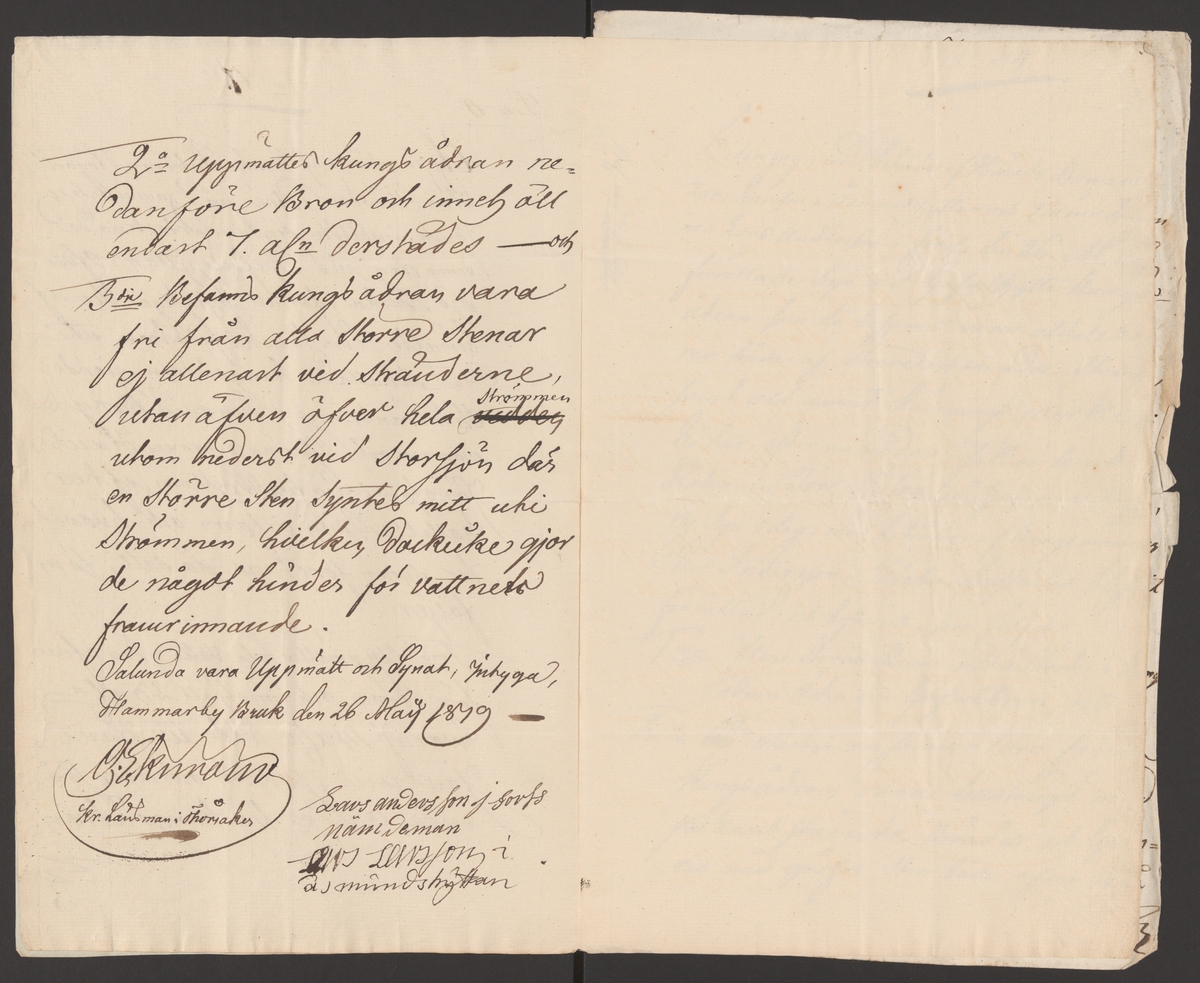 2o Uppmättes kungsådran ne=
danföre Bron och innehöll
endast 7. aln derstädes — och
3die Befanns kungsådran vara
fri från alla större Stenar
ej allenast vid Stränderne,
utan äfven öfver hela Strömmen
utom nederst vid Storsjön där
en Större Sten Syntes mitt uti
Strömmen, hvilken dock icke gjor
de något hinder för vattnets
framrinnande.
Salunda vara Uppmätt och Synat, intyga,
Hammarby Bruk den 26 Maij 1819 —
Kr. Länsman i Thorsåker
Lars andersson j
nämdeman
Lars Larsson i
åsmundshyttan